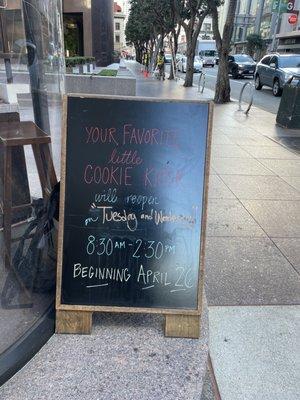 YOUR FAVORITE
little
COOKIE KIOSK
will reopen
on "Tuesday and Wednesday"
8:30AM - 2:30PM
BEGINNING APRIL 26